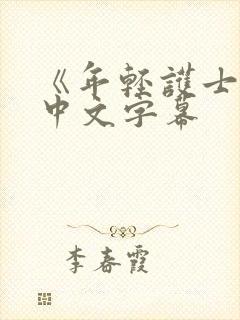 《年轻護士
中文字幕
李春霞